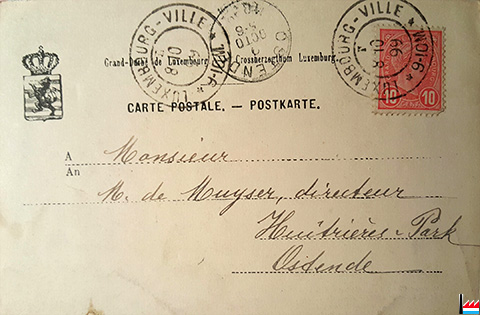 Grand-Duché de Luxembourg. Grossherzogthum Luxemburg.
LUXEMBOURG-VILLE
LUXEMBOURG-VILLE
CARTE POSTALE. — POSTKARTE.
10 10
A Monsieur
An
M. de Muyser, directeur
Huîtrières-Park
Ostende